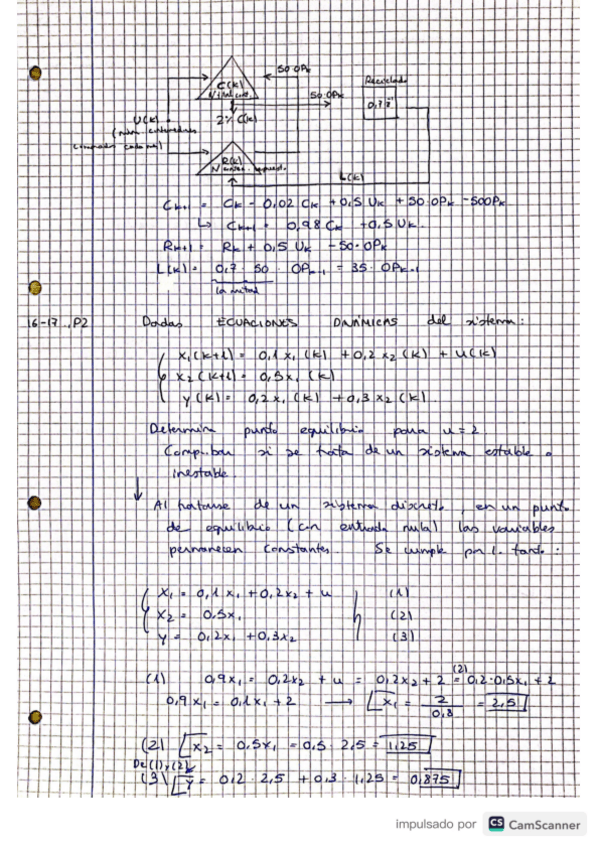 50·OPk
C(k)
50·OPk
Reciclado
0,7 z⁻¹
U(k)
2% C(k)
R(k)
L(k)
Ck+1 = Ck - 0,02 Ck + 0,5 Uk + 50·OPk - 50OPk
↳ Ck+1 = 0,98 Ck + 0,5 Uk
Rk+1 = Rk + 0,5 Uk - 50·OPk
L(k) = 0,7 · 50 · OPk-1 = 35·OPk-1
la mitad
16-17, P2 Dadas ECUACIONES DINÁMICAS del sistema:
x₁(k+1) = 0,1x₁(k) + 0,2x₂(k) + u(k)
x₂(k+1) = 0,5x₁(k)
y(k) = 0,2x₁(k) + 0,3x₂(k).
Determina punto equilibrio para u = 2.
Comprobar si se trata de un sistema estable o
inestable.
↓ Al tratarse de un sistema discreto, en un punto
de equilibrio (con entrada nula) las variables
permanecen constantes. Se cumple por lo tanto:
x₁ = 0,1x₁ + 0,2x₂ + u (1)
x₂ = 0,5x₁ (2)
y = 0,2x₁ + 0,3x₂ (3)
(1) 0,9x₁ = 0,2x₂ + u = 0,2x₂ + 2 (2)= 0,2·0,5x₁ + 2
0,9x₁ = 0,1x₁ + 2 → x₁ = 2/0,8 = 2,5
(2) x₂ = 0,5x₁ = 0,5 · 2,5 = 1,25
De (1) y (2)
(3) y = 0,2 · 2,5 + 0,3 · 1,25 = 0,875
impulsado por CS CamScanner